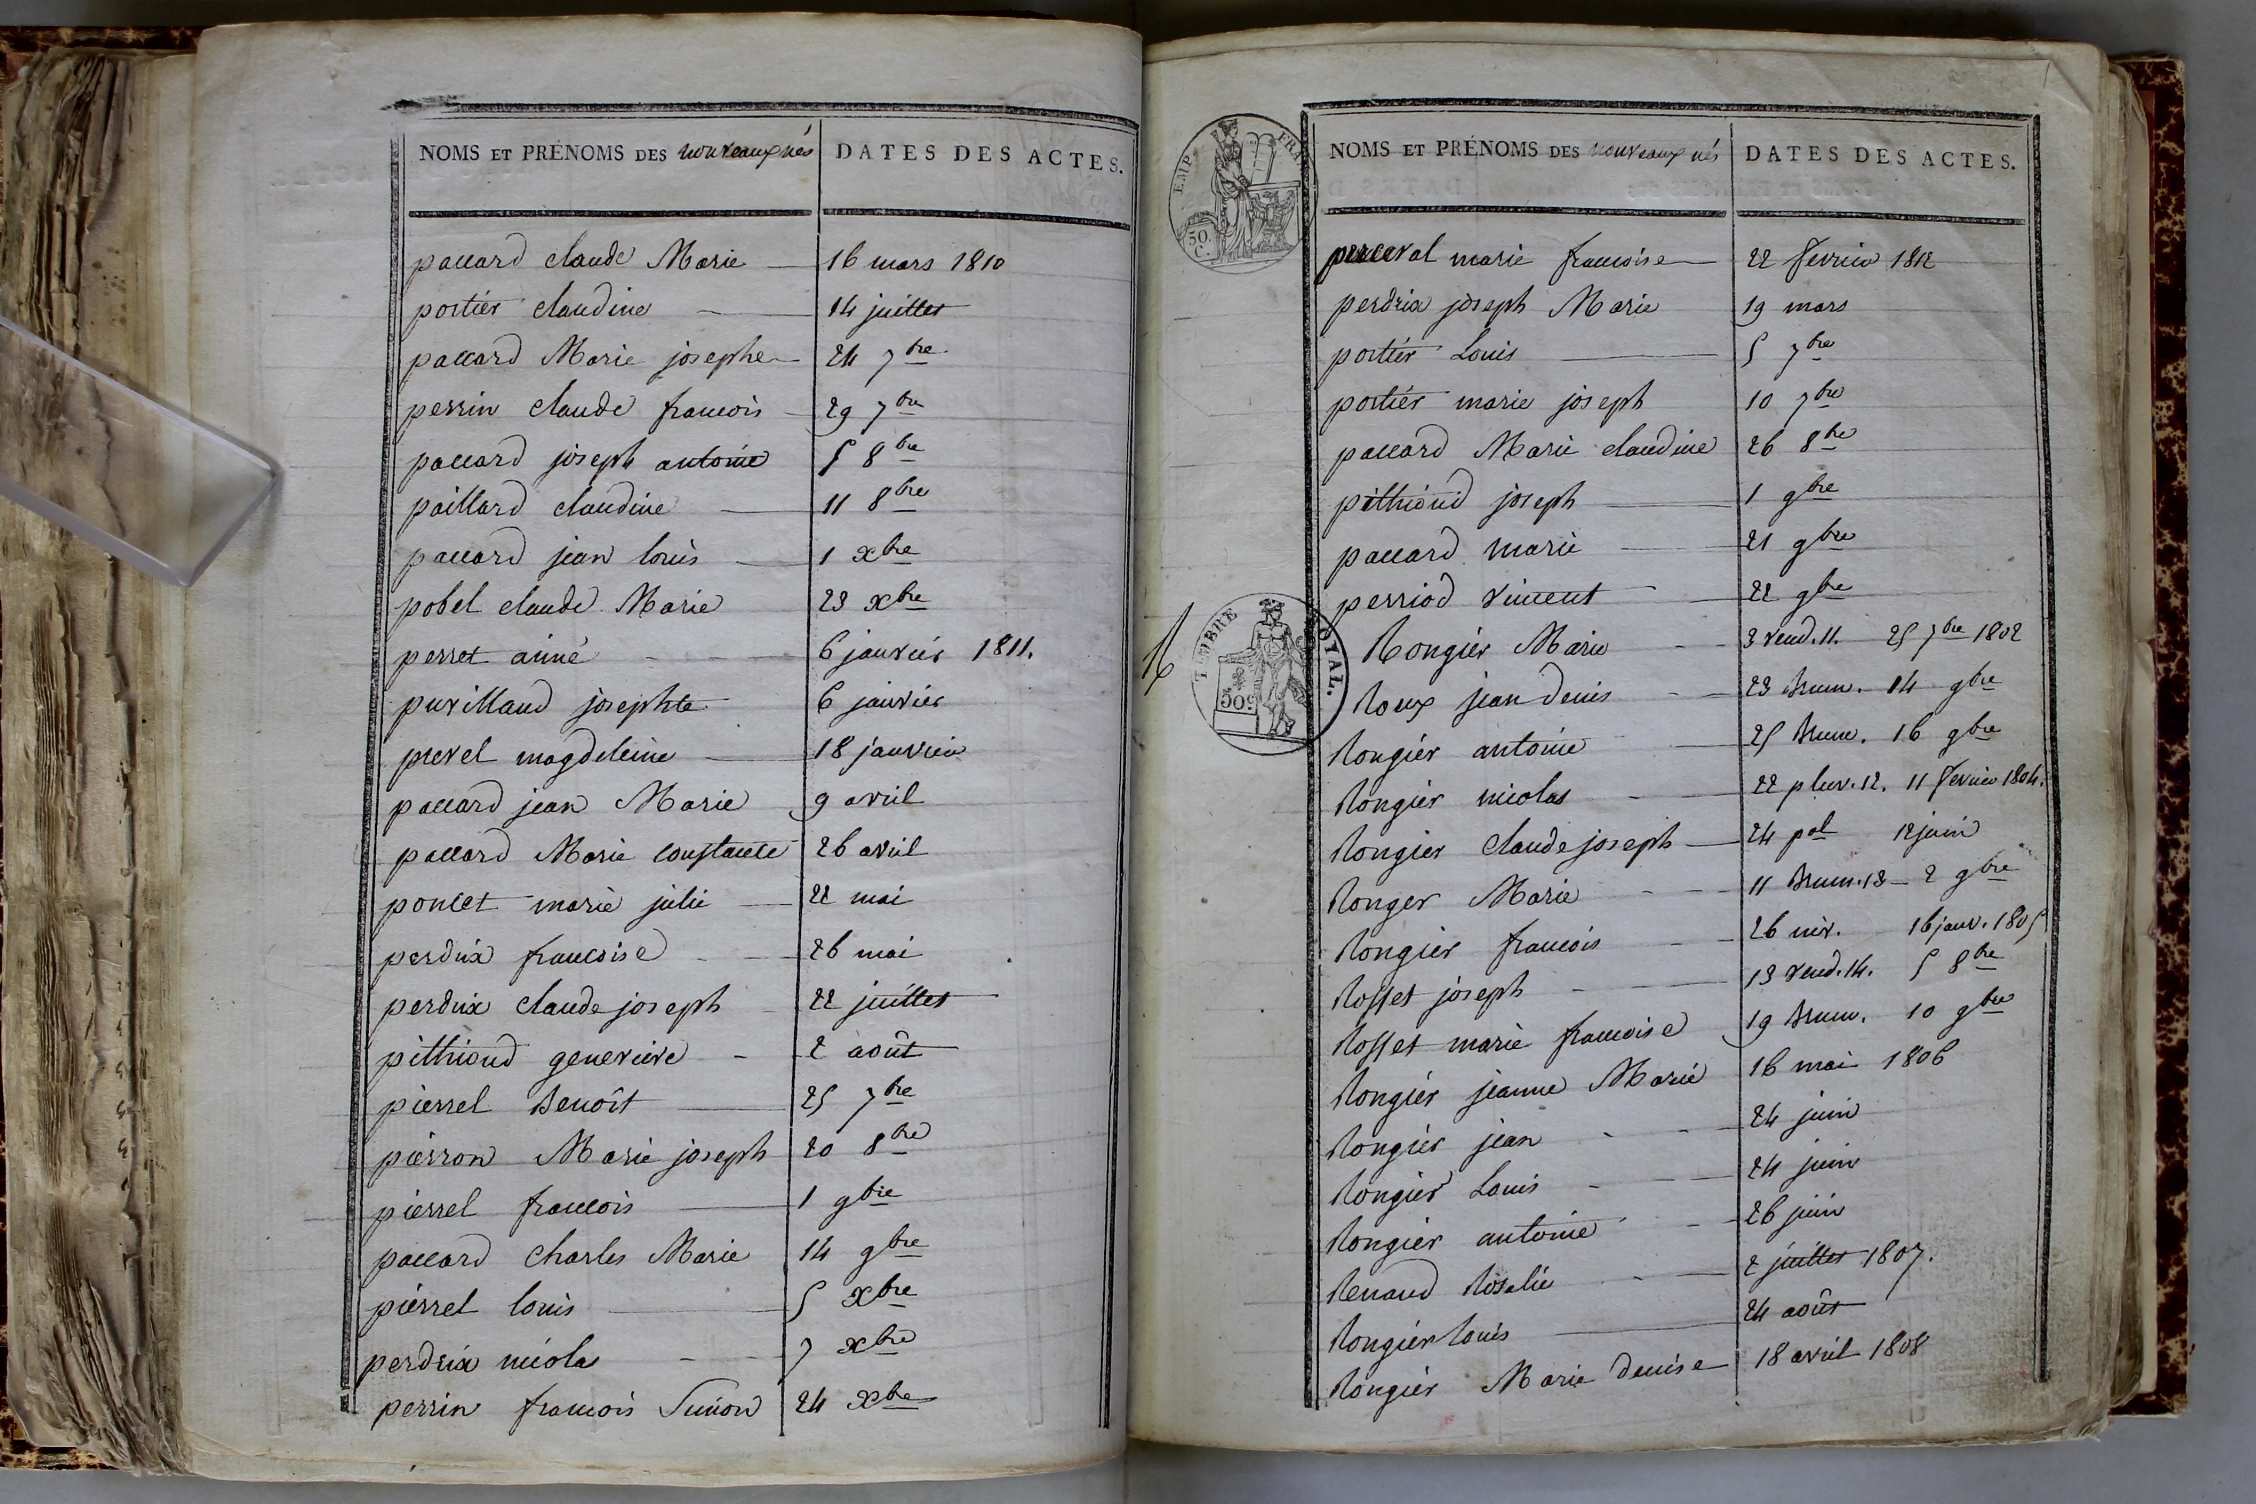 NOMS ET PRÉNOMS DES nouveaux nés DATES DES ACTES.
paccard claude Marie 16 mars 1810
portier claudine 14 juillet
paccard Marie josephe 24 7bre
perrin claude francois 29 7bre
paccard joseph antoine 5 8bre
paillard claudine 11 8bre
paccard jean louis 1 xbre
pobel claude Marie 23 xbre
perret aimé 6 janvier 1811.
puvilland josephte 6 janvier
prevel magdeleine 18 janvier
paccard jean Marie 9 avril
paccard Marie constance 26 avril
poncet marie julie 22 mai
perdrix francoise 26 mai
perdrix claude joseph 22 juillet
pithioud genevieve 2 août
pierrel Benoît 25 7bre
pierron Marie joseph 20 8bre
pierrel francois 1 9bre
paccard Charles Marie 14 9bre
pierrel louis 5 xbre
perdrix nicolas 7 xbre
perrin francois Simon 24 xbre
NOMS ET PRÉNOMS DES nouveaux nés DATES DES ACTES.
EMP. FRA
50. C.
perceval marie francoise 22 fevrier 1812
perdrix joseph Marie 19 mars
portier Louis 5 7bre
portier marie joseph 10 7bre
paccard Marie claudine 26 8bre
pithioud joseph 1 9bre
paccard marie 21 9bre
perriod vincent 22 9bre
R
TIMBRE ROYAL.
50c
Rongier Marie 3 vend. 11. 25 7bre 1802
Roux jean denis 23 brum. 14 9bre
Rongier antoine 25 brum. 16 9bre
Rongier nicolas 22 pluv. 12. 11 fevrier 1804.
Rongier claude joseph 24 pal 12 juin
Ronger Marie 11 brum. 13 2 9bre
Rongier francois 26 niv. 16 janv. 1805
Rosset joseph 13 vend. 14. 5 8bre
Rosset marie francoise 19 brum. 10 9bre
Rongier jeanne Marie 16 mai 1806
Rongier jean 24 juin
Rongier Louis 24 juin
Rongier antoine 26 juin
Renaud Rosalie 2 juillet 1807.
Rongier louis 24 août
Rongier Marie denise 18 avril 1808